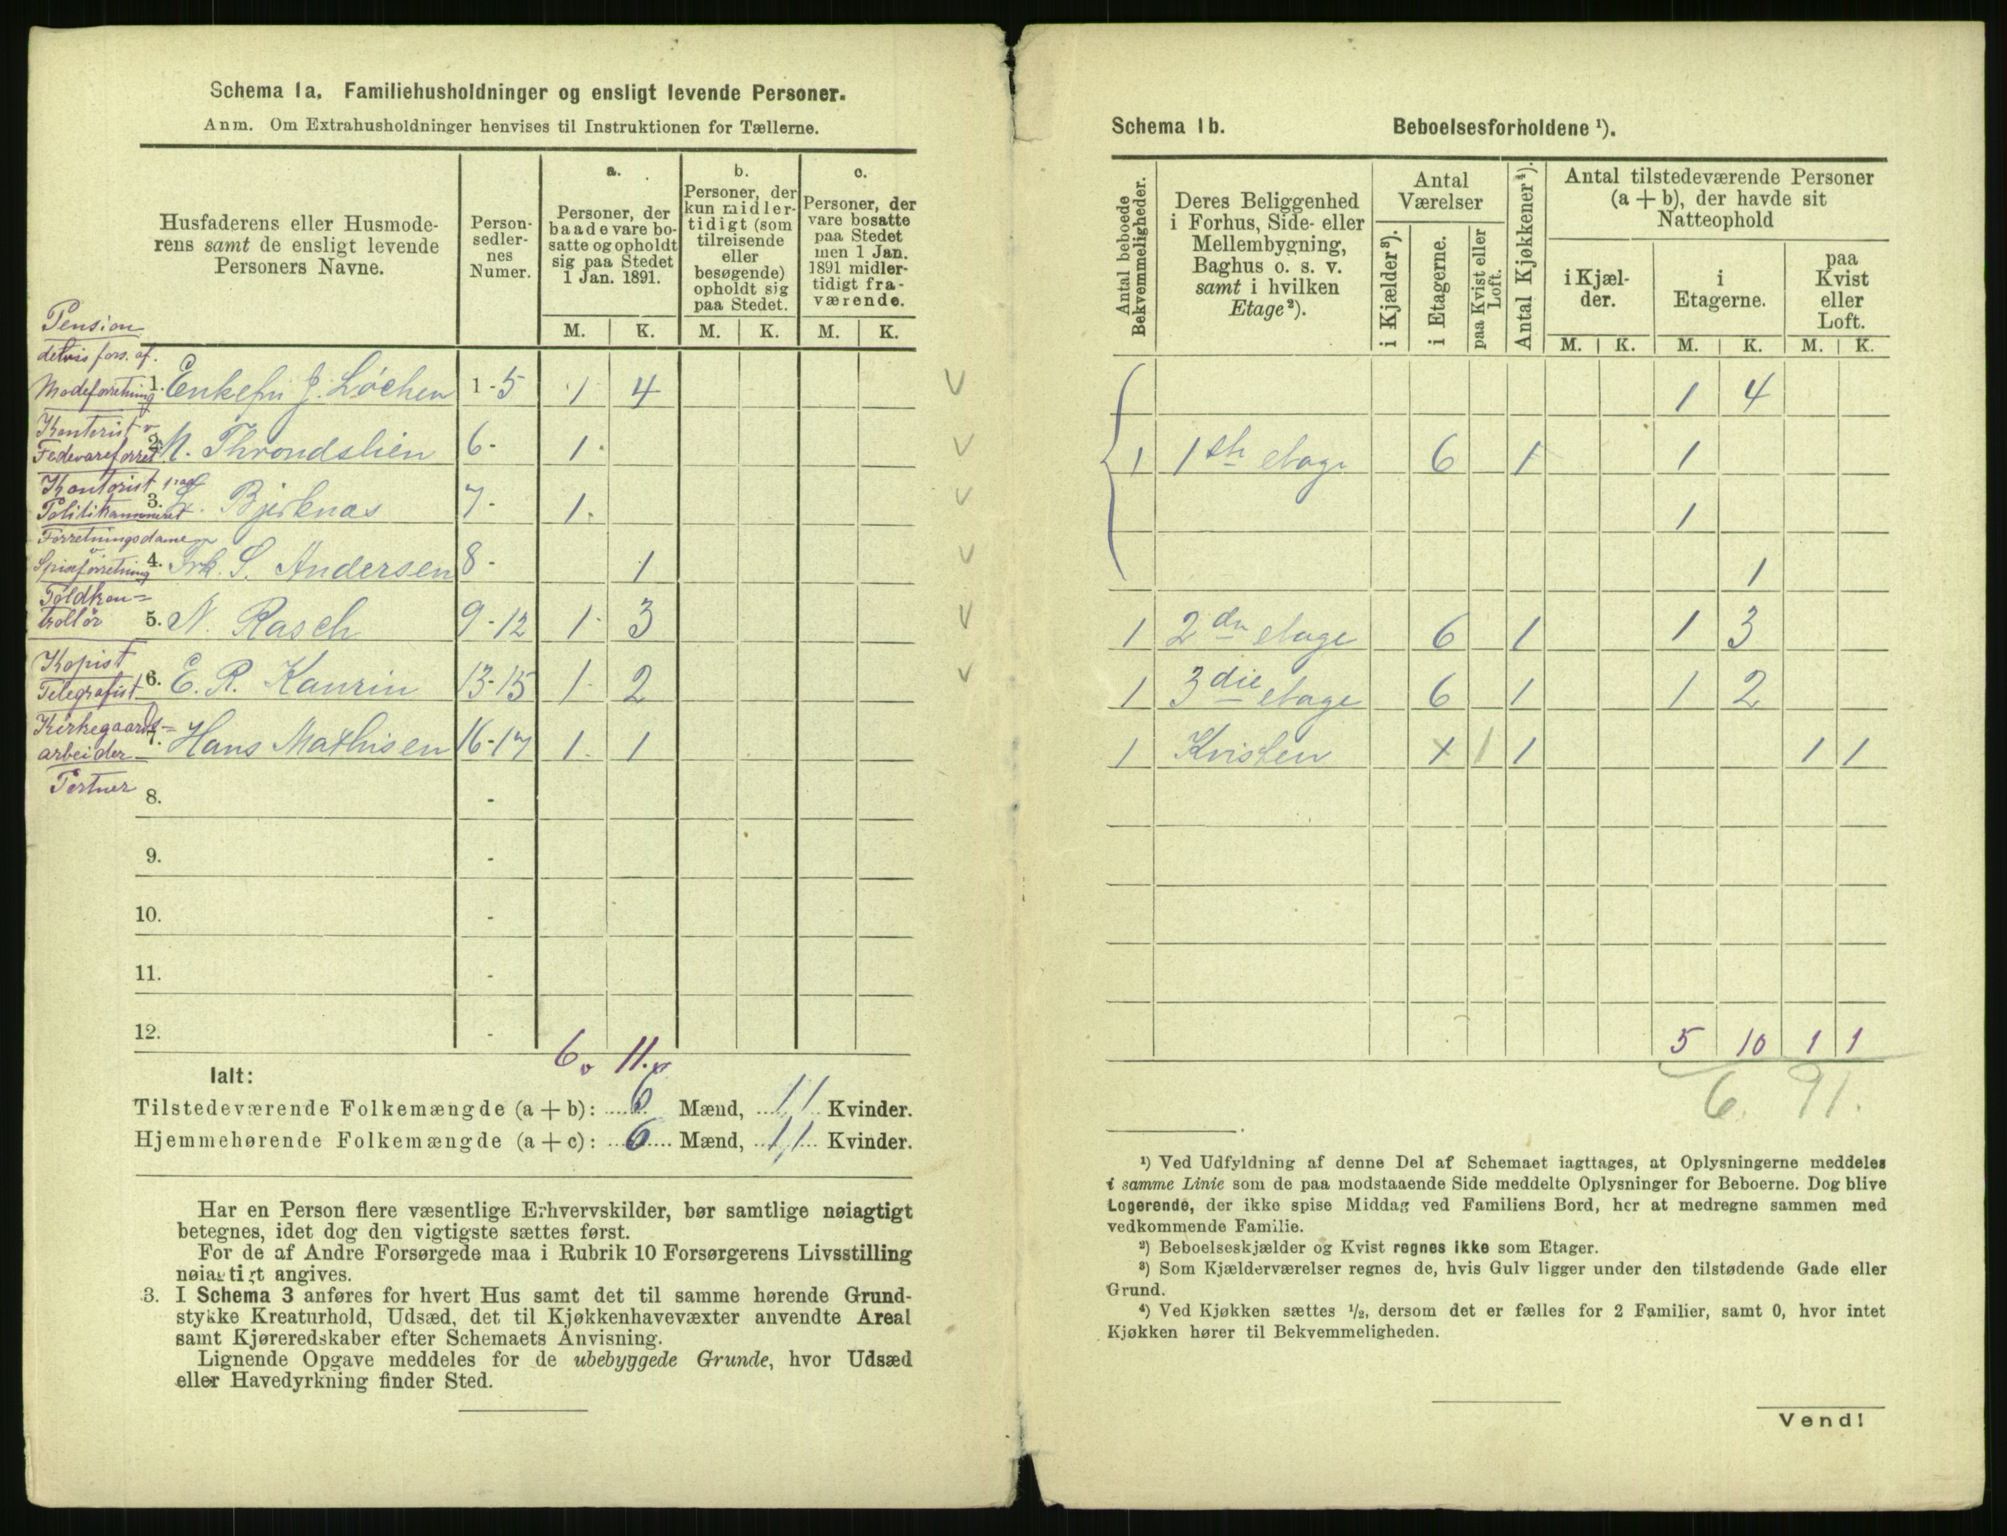 Schema 1a. Familiehusholdninger og ensligt levende Personer.
Anm. Om Extrahusholdninger henvises til Instruktionen for Tællerne.
Husfaderens eller Husmode-
rens samt de ensligt levende
Personers Navne.
Person-
sedler-
nes
Numer.
a.
Personer, der
baade vare bo-
satte og opholdt
sig paa Stedet
1 Jan. 1891.
b.
Personer, der
kun midler-
tidigt (som
tilreisende
eller
besøgende)
opholdt sig
paa Stedet.
c.
Personer, der
vare bosatte
paa Stedet
men 1 Jan.
1891 midler-
tidigt fra-
værende.
M. K. M. K. M. K.
Pension
delvis fors. af.
Modeforretning 1. Enkefru J. Løchen 1-5 1 4
Kontorist v
Fedevareforret 2. M. Throndslien 6- 1
Kontorist
Politikammeret 3. Bjerknæs 7- 1
Forretningsdame
v
Spiseforretning 4. Frk. S. Andersen 8- 1
Toldkon-
trollör 5. N. Rasch 9-12 1 3
Kopist
Telegrafist 6. E. R. Kaurin 13-15 1 2
Kirkegaards-
arbeider 7. Hans Mathisen 16-17 1 1
Portner
8. -
9. -
10. -
11. -
12. -
6 11
Ialt:
Tilstedeværende Folkemængde (a + b): 6 Mænd, 11 Kvinder.
Hjemmehørende Folkemængde (a + c): 6 Mænd, 11 Kvinder.
Har en Person flere væsentlige Erhvervskilder, bør samtlige nøiagtigt
betegnes, idet dog den vigtigste sættes først.
For de af Andre Forsørgede maa i Rubrik 10 Forsørgerens Livsstilling
nøiagtigt angives.
3. I Schema 3 anføres for hvert Hus samt det til samme hørende Grund-
stykke Kreaturhold, Udsæd, det til Kjøkkenhavevæxter anvendte Areal
samt Kjøreredskaber efter Schemaets Anvisning.
Lignende Opgave meddeles for de ubebyggede Grunde, hvor Udsæd
eller Havedyrkning finder Sted.
Schema 1b. Beboelsesforholdene ¹).
Antal beboede
Bekvemmeligheder.
Deres Beliggenhed
i Forhus, Side- eller
Mellembygning,
Baghus o. s. v.
samt i hvilken
Etage²).
Antal
Værelser
i Kjælder³).
i Etagerne.
paa Kvist eller
Loft.
Antal Kjøkkener⁴).
Antal tilstedeværende Personer
(a + b), der havde sit
Natteophold
i Kjæl-
der.
i
Etagerne.
paa
Kvist
eller
Loft.
M. K. M. K. M. K.
1 4
1 1ste etage 6 1 1
1
1
1 2den etage 6 1 1 3
1 3die etage 6 1 1 2
1 Kvisten 1 1 1 1
5 10 1 1
6. 11.
¹) Ved Udfyldning af denne Del af Schemaet iagttages, at Oplysningerne meddeles
i samme Linie som de paa modstaaende Side meddelte Oplysninger for Beboerne. Dog blive
Logerende, der ikke spise Middag ved Familiens Bord, her at medregne sammen med
vedkommende Familie.
²) Beboelseskjælder og Kvist regnes ikke som Etager.
³) Som Kjælderværelser regnes de, hvis Gulv ligger under den tilstødende Gade eller
Grund.
⁴) Ved Kjøkken sættes ½, dersom det er fælles for 2 Familier, samt 0, hvor intet
Kjøkken hører til Bekvemmeligheden.
Vend!